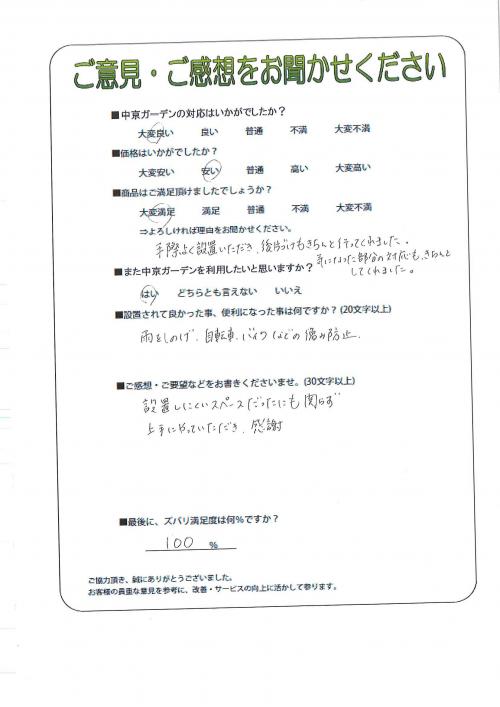 ご意見・ご感想をお聞かせください
■中京ガーデンの対応はいかがでしたか？
大変良い 良い 普通 不満 大変不満
■価格はいかがでしたか？
大変安い 安い 普通 高い 大変高い
■商品はご満足頂けましたでしょうか？
大変満足 満足 普通 不満 大変不満
⇒よろしければ理由をお聞かせください。
手際よく設置いただき、後片づけもきちんと行ってくれました。
気になった部分の対応も、きちんと
してくれました。
■また中京ガーデンを利用したいと思いますか？
はい どちらとも言えない いいえ
■設置されて良かった事、便利になった事は何ですか？(20文字以上)
雨をしのげ、自転車、バイクなどの傷み防止、
■ご感想・ご要望などをお書きくださいませ。(30文字以上)
設置しにくいスペースだったにも関らず
上手にやっていただき、感謝
■最後に、ズバリ満足度は何%ですか？
100 %
ご協力頂き、誠にありがとうございました。
お客様の貴重な意見を参考に、改善・サービスの向上に活かして参ります。